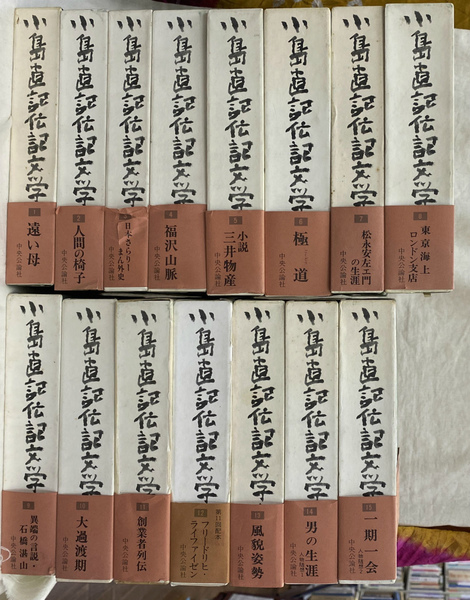 小島直記伝記文学
1
遠い母
中央公論社
小島直記伝記文学
2
人間の椅子
中央公論社
小島直記伝記文学
3
日本さらりー
まん外史
中央公論社
小島直記伝記文学
4
福沢山脈
中央公論社
小島直記伝記文学
5
小説
三井物産
中央公論社
小島直記伝記文学
6
極道
中央公論社
小島直記伝記文学
7
松永安左エ門
の生涯
中央公論社
小島直記伝記文学
8
東京海上
ロンドン支店
中央公論社
小島直記伝記文学
9
異端の言説・
石橋湛山
中央公論社
小島直記伝記文学
10
大過渡期
中央公論社
小島直記伝記文学
11
創業者列伝
中央公論社
小島直記伝記文学
12
第11回配本
フリードリヒ・
ライファイゼン
中央公論社
小島直記伝記文学
13
風貌姿勢
中央公論社
小島直記伝記文学
14
男の生涯
中央公論社
小島直記伝記文学
15
一期一会
中央公論社